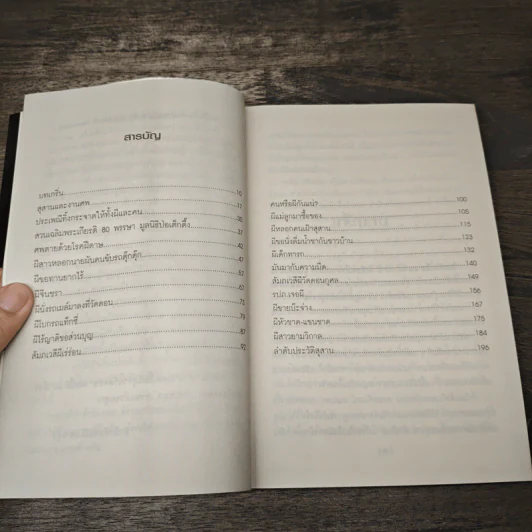 สารบัญ
บทเกริ่น 10
สุสานและงานศพ 11
ประเพณีทิ้งกระจาดให้ทั้งผีและคน 30
สวนเฉลิมพระเกียรติ 80 พรรษา มูลนิธิป่อเต็กตึ๊ง 37
ศพตายด้วยโรคฝีดาษ 42
ผีสาวหลอกนายมันคนขับรถตุ๊กตุ๊ก 47
ผีขอทานยากไร้
ผีจีนชรา 67
ผีนั่งรถเมล์มาลงที่วัดดอน 75
ผีโบกรถแท็กซี่ 79
ผีไร้ญาติขอส่วนบุญ 87
สัมภเวสีผีเร่ร่อน 92
คนหรือผีกันแน่? 100
ผีแม่ลูกมาซื้อของ 105
ผีหลอกคนเฝ้าสุสาน 115
ผีขอนั่งดื่มน้ำชากับชาวบ้าน 123
ผีเด็กทารก 132
มันมากับความมืด 140
สัมภเวสีผีวัดดอนกุศล 149
รปภ.เจอผี 156
ผีขายบ๊ะจ่าง 167
ผีหัวขาด-แขนขาด 175
ผีสาวยามวิกาล 184
ลำดับประวัติสุสาน 196